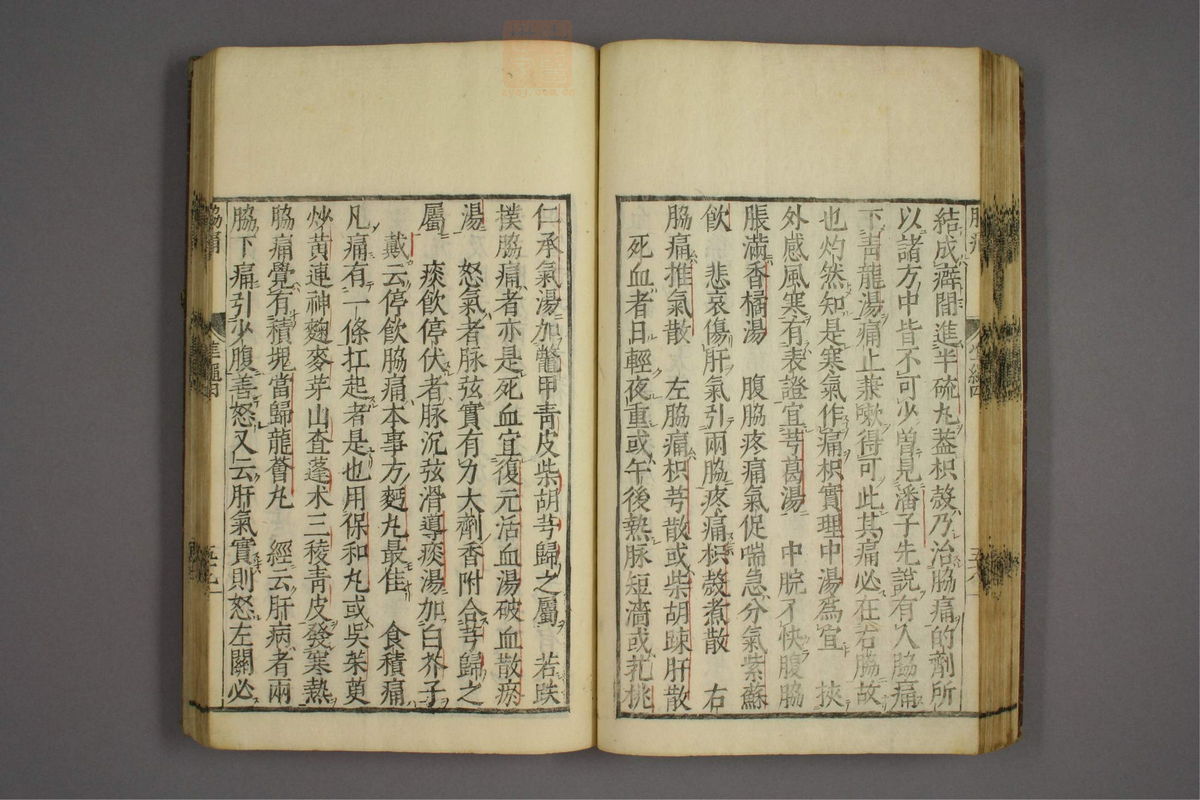 結成癖間進半硫丸蓋枳殼乃治脇痛的劑所
以諸方中皆不可少曽見潘子先說有人脇痛
下靑龍湯痛止兼嗽得可此其痛必在右脇故
也灼然知是寒氣作痛枳實理中湯為宜　挾
外感風寒有表證宜芎葛湯　中脘不快腹脇
脹滿香橘湯　腹脇疼痛氣促喘急分氣紫蘇
飲　悲哀傷肝氣引兩脇疼痛枳殼煮散　右
脇痛推氣散　左脇痛枳芎散或柴胡踈肝散
死血者日輕夜重或午後熱脉短濇或芤桃
仁承氣湯加鱉甲靑皮柴胡芎歸之屬　若跌
撲脇痛者亦是死血宜復元活血湯破血散瘀
湯　怒氣者脉弦實有力大劑香附合芎歸之
屬　痰飲停伏者脉沉弦滑導痰湯加白芥子
戴云停飲脇痛本事方麪丸最佳　食積痛
凡痛有一條扛起者是也用保和丸或吳茱萸
炒黃連神麴麥芽山査蓬术三稜靑皮發寒熱
脇痛覺有積塊當歸龍薈丸　經云肝病者兩
脇下痛引少腹善怒又云肝氣實則怒左關必
脇痛